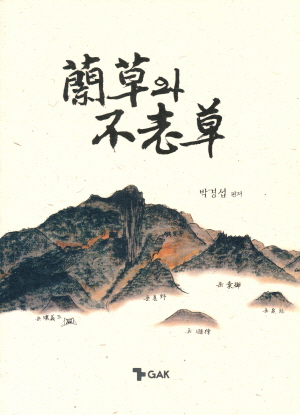 蘭草와
不老草
박경섭 편저
GAK